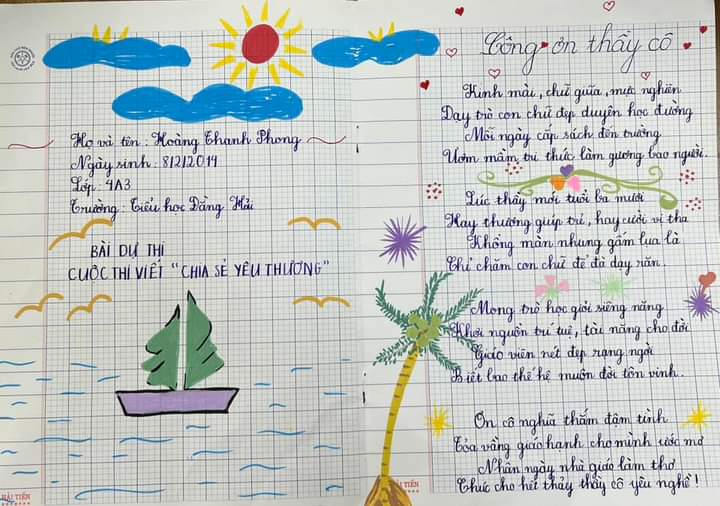 Họ và tên : Hoàng Thanh Phong
Ngày sinh : 8/2/2014
Lớp : 4A3
Trường : Tiểu học Đằng Hải
BÀI DỰ THI
CUỘC THI VIẾT "CHIA SẺ YÊU THƯƠNG"
HẢI TIẾN
Công ơn thầy cô
Kính màu, chữ giữa, mực nghiên
Dạy trò con chữ đẹp duyên học đường
Mỗi ngày cấp sách đến trường
Ươm mầm tri thức làm gương bao người.
Lúc thầy mới tuổi ba mươi
Hay thương giúp trẻ, hay cười vị tha
Không màn nhung gấm lụa là
Chỉ chăm con chữ để đà dạy răn.
Mong trò học giỏi siêng năng
Khơi nguồn trí tuệ, tài năng cho đời
Giáo viên nét đẹp rạng ngời
Biết bao thế hệ muôn đời tôn vinh.
Ơn cô nghĩa thắm đậm tình
Tỏa vầng giáo hạnh cho mình ước mơ
Nhân ngày nhà giáo làm thơ
Chúc cho hết thảy thầy cô yêu nghề!
HẢI TIẾN